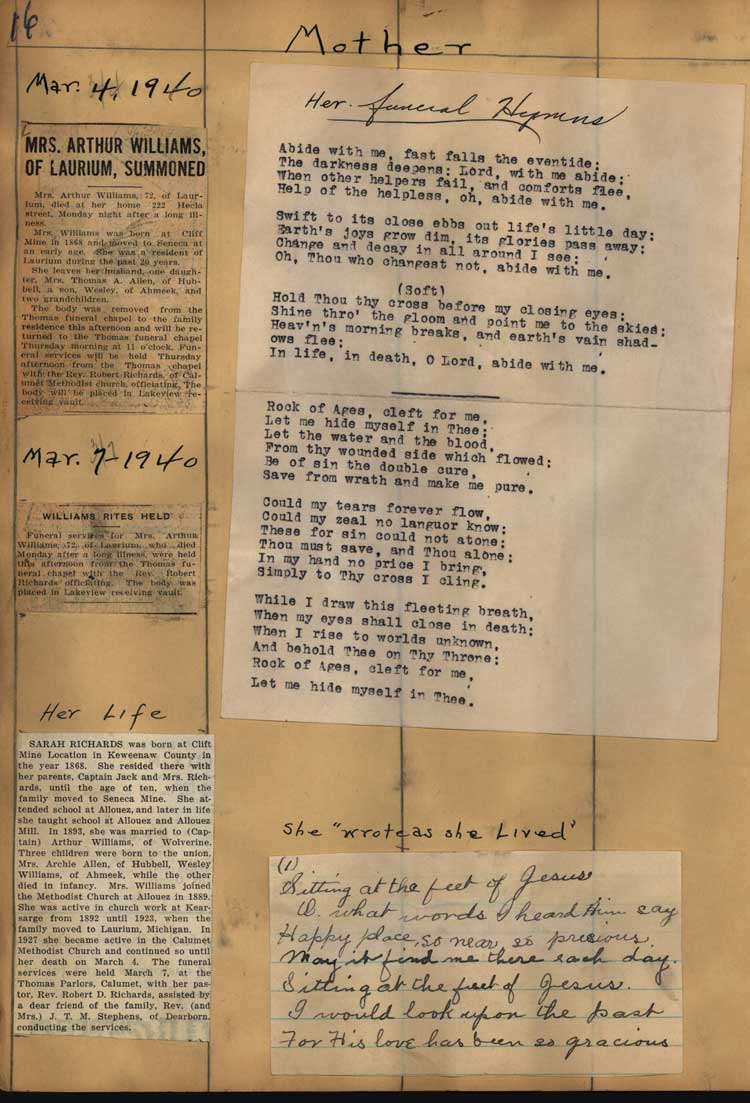 16
Mother
Mar. 4, 1940
MRS. ARTHUR WILLIAMS,
OF LAURIUM, SUMMONED
Mrs. Arthur Williams, 72, of Laur-
ium, died at her home 222 Hecla
street, Monday night after a long ill-
ness.
Mrs. Williams was born at Cliff
Mine in 1868 and moved to Seneca at
an early age. She was a resident of
Laurium during the past 20 years.
She leaves her husband, one daugh-
ter, Mrs. Thomas A. Allen, of Hub-
bell, a son, Wesley, of Ahmeek, and
two grandchildren.
The body was removed from the
Thomas funeral chapel to the family
residence this afternoon and will be re-
turned to the Thomas funeral chapel
Thursday morning at 11 o'clock. Fun-
eral services will be held Thursday
afternoon from the Thomas chapel
with the Rev. Robert Richards, of Cal-
umet Methodist church, officiating. The
body will be placed in Lakeview re-
ceiving vault.
Mar. 7-1940
WILLIAMS RITES HELD
Funeral services for Mrs. Arthur
Williams, 72, of Laurium, who died
Monday after a long illness, were held
this afternoon from the Thomas fu-
neral chapel with the Rev. Robert
Richards officiating. The body was
placed in Lakeview receiving vault.
Her Life
SARAH RICHARDS was born at Clift
Mine Location in Keweenaw County in
the year 1868. She resided there with
her parents, Captain Jack and Mrs. Rich-
ards, until the age of ten, when the
family moved to Seneca Mine. She at-
tended school at Allouez, and later in life
she taught school at Allouez and Allouez
Mill. In 1893, she was married to (Cap-
tain) Arthur Williams, of Wolverine.
Three children were born to the union,
Mrs. Archie Allen, of Hubbell, Wesley
Williams, of Ahmeek, while the other
died in infancy. Mrs. Williams joined
the Methodist Church at Allouez in 1889.
She was active in church work at Kear-
sarge from 1892 until 1923, when the
family moved to Laurium, Michigan. In
1927 she became active in the Calumet
Methodist Church and continued so until
her death on March 4. The funeral
services were held March 7, at the
Thomas Parlors, Calumet, with her pas-
tor, Rev. Robert D. Richards, assisted by
a dear friend of the family, Rev. (and
Mrs.) J. T. M. Stephens, of Dearborn,
conducting the services.
Her funeral Hymns
Abide with me, fast falls the eventide;
The darkness deepens; Lord, with me abide;
When other helpers fail, and comforts flee,
Help of the helpless, oh, abide with me.
Swift to its close ebbs out life's little day;
Earth's joys grow dim, its glories pass away;
Change and decay in all around I see;
Oh, Thou who changest not, abide with me.
(Soft)
Hold Thou thy cross before my closing eyes;
Shine thro' the gloom and point me to the skies;
Heav'n's morning breaks, and earth's vain shad-
ows flee;
In life, in death, O Lord, abide with me.
Rock of Ages, cleft for me,
Let me hide myself in Thee;
Let the water and the blood,
From thy wounded side which flowed;
Be of sin the double cure,
Save from wrath and make me pure.
Could my tears forever flow,
Could my zeal no languor know;
These for sin could not atone;
Thou must save, and Thou alone;
In my hand no price I bring,
Simply to Thy cross I cling.
While I draw this fleeting breath,
When my eyes shall close in death;
When I rise to worlds unknown,
And behold Thee on Thy Throne;
Rock of Ages, cleft for me,
Let me hide myself in Thee.
She "wrote as she Lived"
(1)
Sitting at the feet of Jesus
O. what words I heard Him say
Happy place, so near, so precious.
May it find me there each day.
Sitting at the feet of Jesus.
I would look upon the past
For His love has been so gracious